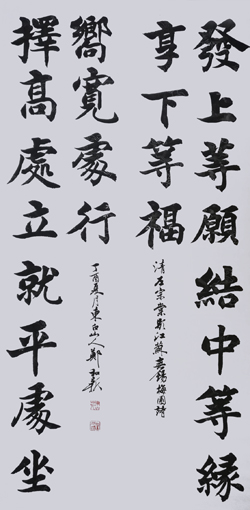 發上等願結中等緣
享下等福
清左宗棠題江蘇無錫梅園詩
嚮寬處行
丁酉春月東白山人鄭
擇高處立就平處坐